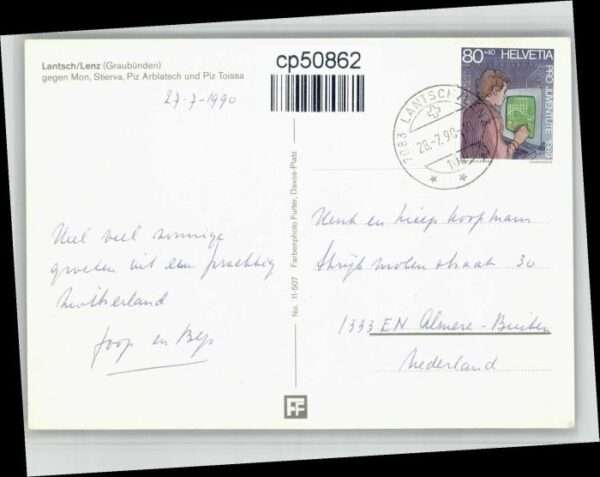 Lantsch/Lenz (Graubünden)
gegen Mon, Stierva, Piz Arblatsch und Piz Toissa
27-7-1990
cp50862
80+40 HELVETIA
PRO JUVENTUTE 1989
7083 LANTSCH
28.-7.90
Veel veel zonnige
groeten uit een prachtig
Zwitserland
Joop en Bep
No. 11-507 Farbenphoto Furter, Davos-Platz
Henk en Koopmans
straat 30
1333 EN Almere-Buiten
Nederland